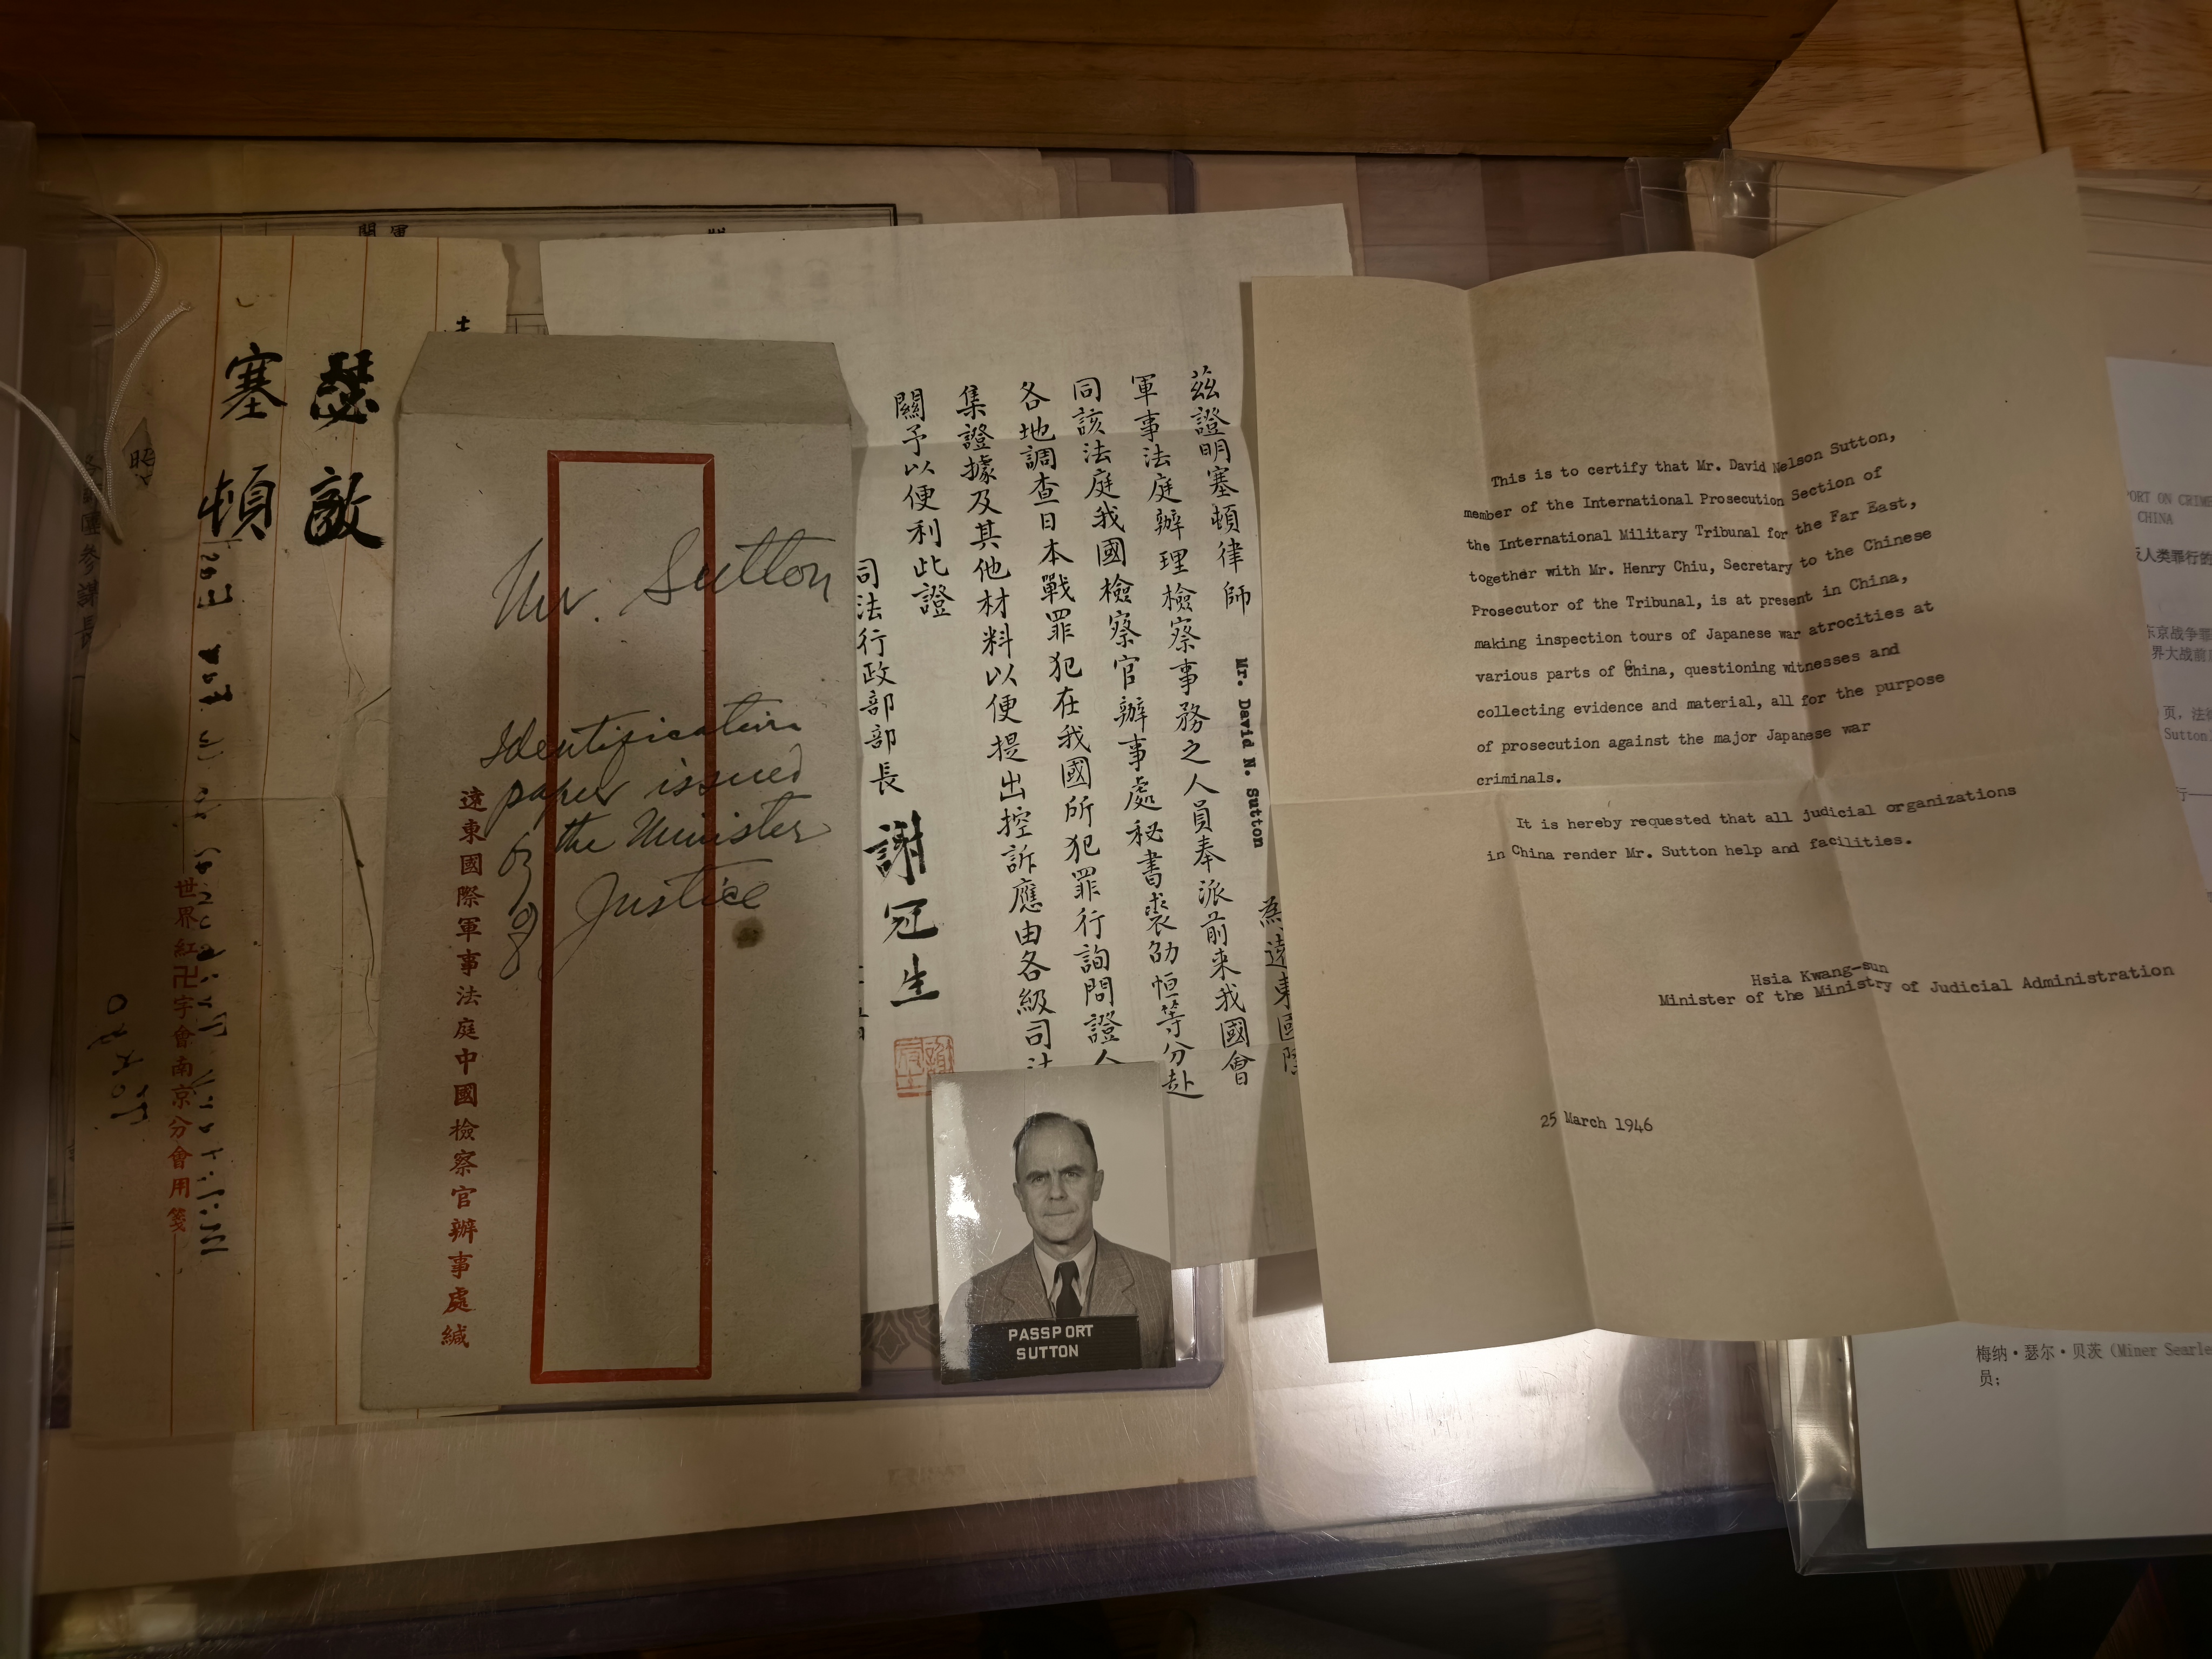 瑟敵
塞頓
世界紅卍字會南京分會用箋
Mr. Sutton
Identification
paper issued
by the Minister
of Justice
遠東國際軍事法庭中國檢察官辦事處緘
茲證明塞頓律師 Mr. David N. Sutton 為遠東國際
軍事法庭辦理檢察事務之人員奉派前来我國會
同該法庭我國檢察官辦事處秘書裘劭恒等分赴
各地調查日本戰罪犯在我國所犯罪行詢問證人
集證據及其他材料以便提出控訴應由各級司法
關予以便利此證
司法行政部部長 謝冠生
PASSPORT
SUTTON
This is to certify that Mr. David Nelson Sutton,
member of the International Prosecution Section of
the International Military Tribunal for the Far East,
together with Mr. Henry Chiu, Secretary to the Chinese
Prosecutor of the Tribunal, is at present in China,
making inspection tours of Japanese war atrocities at
various parts of China, questioning witnesses and
collecting evidence and material, all for the purpose
of prosecution against the major Japanese war
criminals.
It is hereby requested that all judicial organizations
in China render Mr. Sutton help and facilities.
Hsia Kwang-sun
Minister of the Ministry of Judicial Administration
25 March 1946
PORT ON CRIME
CHINA
反人类罪行的
东京战争罪
界大战前
页，法律
Sutton
行——
梅纳·瑟尔·贝茨（Miner Searle
员；